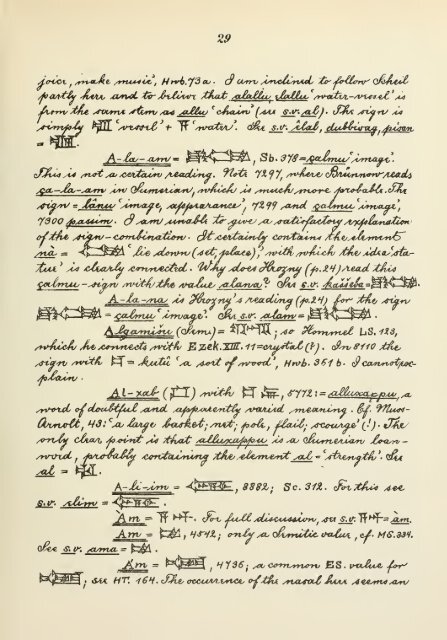 29
joice, make music', Hwb. 73a. I am inclined to follow Scheil
partly here and to believe that alallu, elallu 'water-vessel' is
from the same stem as allu 'chain' (see s.v. al). The sign is
simply 'vessel' + 𒀀 'water'. See s.v. êlal, dubbiwag, pisan
=
A-la-am = , Sb. 378 = çalmu 'image'.
This is not a certain reading. Note 7297, where Brünnow reads
ça-la-am in Sumerian, which is much more probable. The
sign = lânu 'image, appearance', 7299 and çalmu 'image',
7300 passim. I am unable to give a satisfactory explanation
of the sign-combination. It certainly contains the element
nà = 'lie down (set, place)', with which the idea 'sta-
tue' is clearly connected. Why does Hrozny (p. 24) read this
çalmu-sign with the value alana? See s.v. kâšéba =
A-la-na is Hrozny's reading (p. 24) for the sign
= çalmu 'image'. See s.v. alam = .
Algamišu (Sem.) = ; so Hommel LS. 123,
which he connects with Ezek. XIII. 11 = crystal (?). In 8110 the
sign with = kutû 'a sort of wood', Hwb. 361b. I cannot ex-
plain.
Al-xab ( ) with , 5772: = alluxappu, a
word of doubtful and apparently varied meaning. Cf. Muss-
Arnolt, 43: 'a large basket; net; pole, flail; scourge' (!). The
only clear point is that alluxappu is a Sumerian loan-
word, probably containing the element al = 'strength'. See
al = .
A-li-im = , 8882; Sc. 312. For this see
s.v. elim = .
Am = 𒀀 . For full discussion, see s.v. = àm.
Am = , 4542; only a Semitic value, cf. MS. 334.
See s.v. ama = .
Am = , 4736; a common ES. value for
; see HT. 164. The occurrence of the nasal here seems an